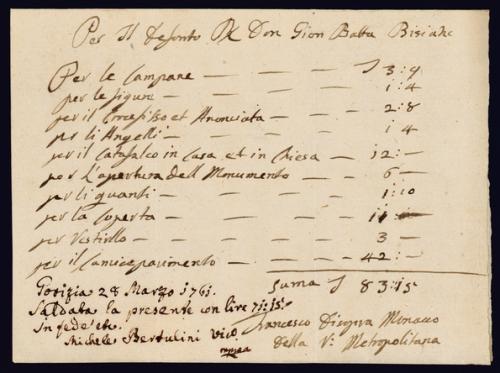 Per Il defonto Don Gion Batta
Per le Campane — — — — 3:9
per le figure — — — — 1:4
per il Crocifisso et Anonciata — — 2:8
per li Angelli — — — 1 4
per il Catafalco in Casa et in Chiesa — 12:—
per l'apertura dell Monumento — 6 —
per li guanti — — — 1:10
per la Coperta — — — 11 —
per Vestirllo — — — 3 —
per il — — 42:—
Suma 83:15
Gorizia 28 Marzo 1761.
Saldata la presente con lire 71:15:
In fede etc.
Michele Bertulini
Francesco Monaco
della V: Metropolitana